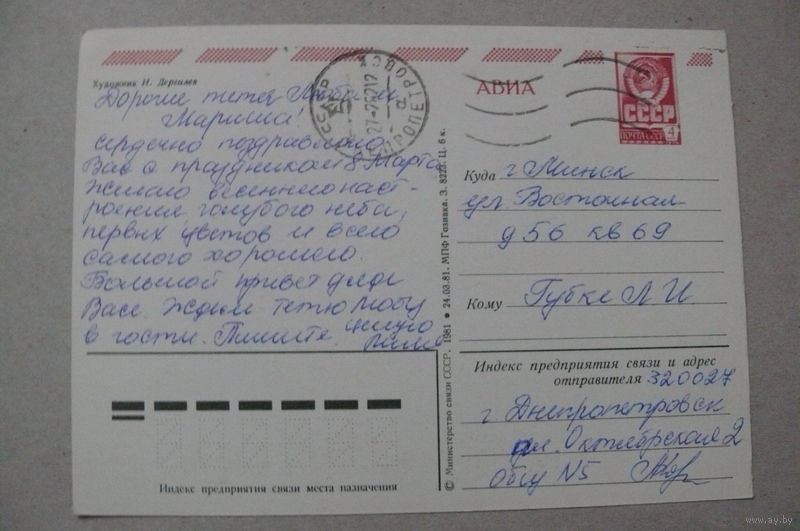 Художник И. Дергилев
Дорогие тетя Люба и
Мариша!
Сердечно поздравляю
Вас с праздником 8 Марта
Желаю весеннего наст-
роения, голубого неба,
первых цветов и всего
самого хорошего.
Большой привет дяде
Васе. Ждем тетю Любу
в гости. Пишите. целую
АВИА
СССР
ПОЧТА СССР
4
Куда г Минск
ул. Восточная
д 56 кв 69
Кому Губке Л И
Индекс предприятия связи и адрес
отправителя 320027
г. Днепропетровск
ул. Октябрьская 2
общ N5
Индекс предприятия связи места назначения
© Министерство связи СССР. 1981 • 24.03.81. МПФ Гознака. З. 8223. Ц. 6 к.
www.ay.by